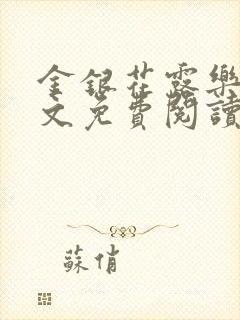 金銀花露樂
文免費閱讀
蘇俏